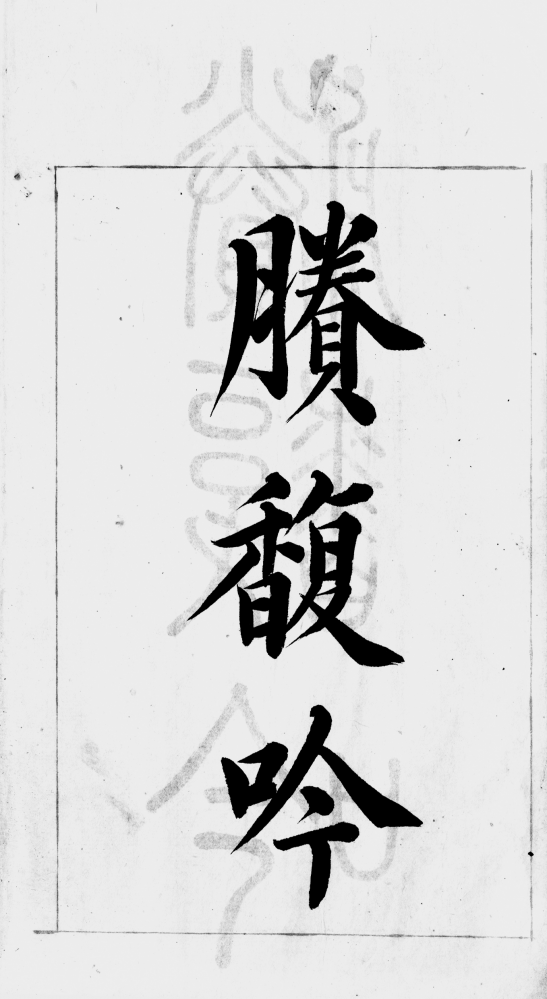 賸馥吟